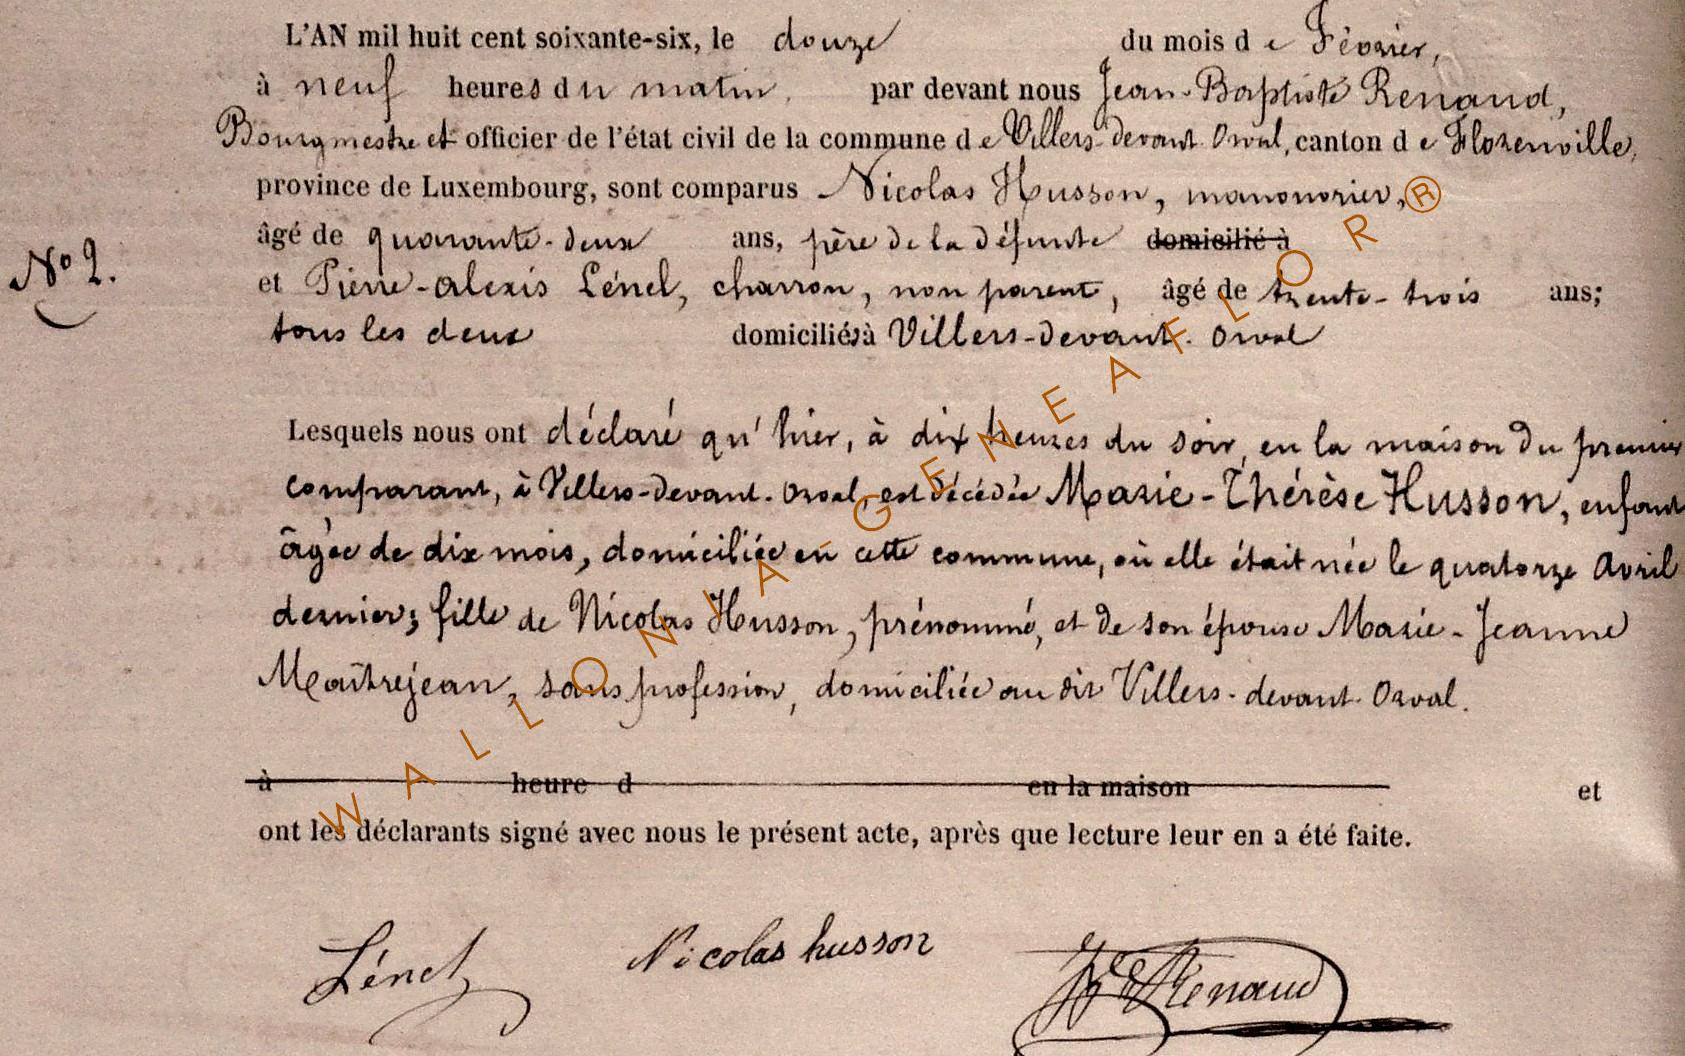 L'AN mil huit cent soixante-six, le douze du mois de Février,
à neuf heures du matin, par devant nous Jean-Baptiste Renaud,
Bourgmestre et officier de l'état civil de la commune de Villers-devant-Orval, canton de Florenville,
province de Luxembourg, sont comparus Nicolas Husson, manouvrier,
âgé de quarante-deux ans, père de la défunte domicilié à
N° 2.
et Pierre-alexis Lénel, charron, non parent, âgé de trente-trois ans;
tous les deux domiciliés à Villers-devant-Orval
Lesquels nous ont déclaré qu'hier, à dix heures du soir, en la maison du premier
comparant, à Villers-devant-Orval, est décédée Marie-Thérèse Husson, enfant
âgée de dix mois, domiciliée en cette commune, où elle était née le quatorze Avril
dernier; fille de Nicolas Husson, prénommé, et de son épouse Marie-Jeanne
Maîtrejean, sans profession, domiciliée au dit Villers-devant-Orval.
à heure d en la maison et
ont les déclarants signé avec nous le présent acte, après que lecture leur en a été faite.
Lénel Nicolas husson JB Renaud
WALLONIA-GENEAFLOR®